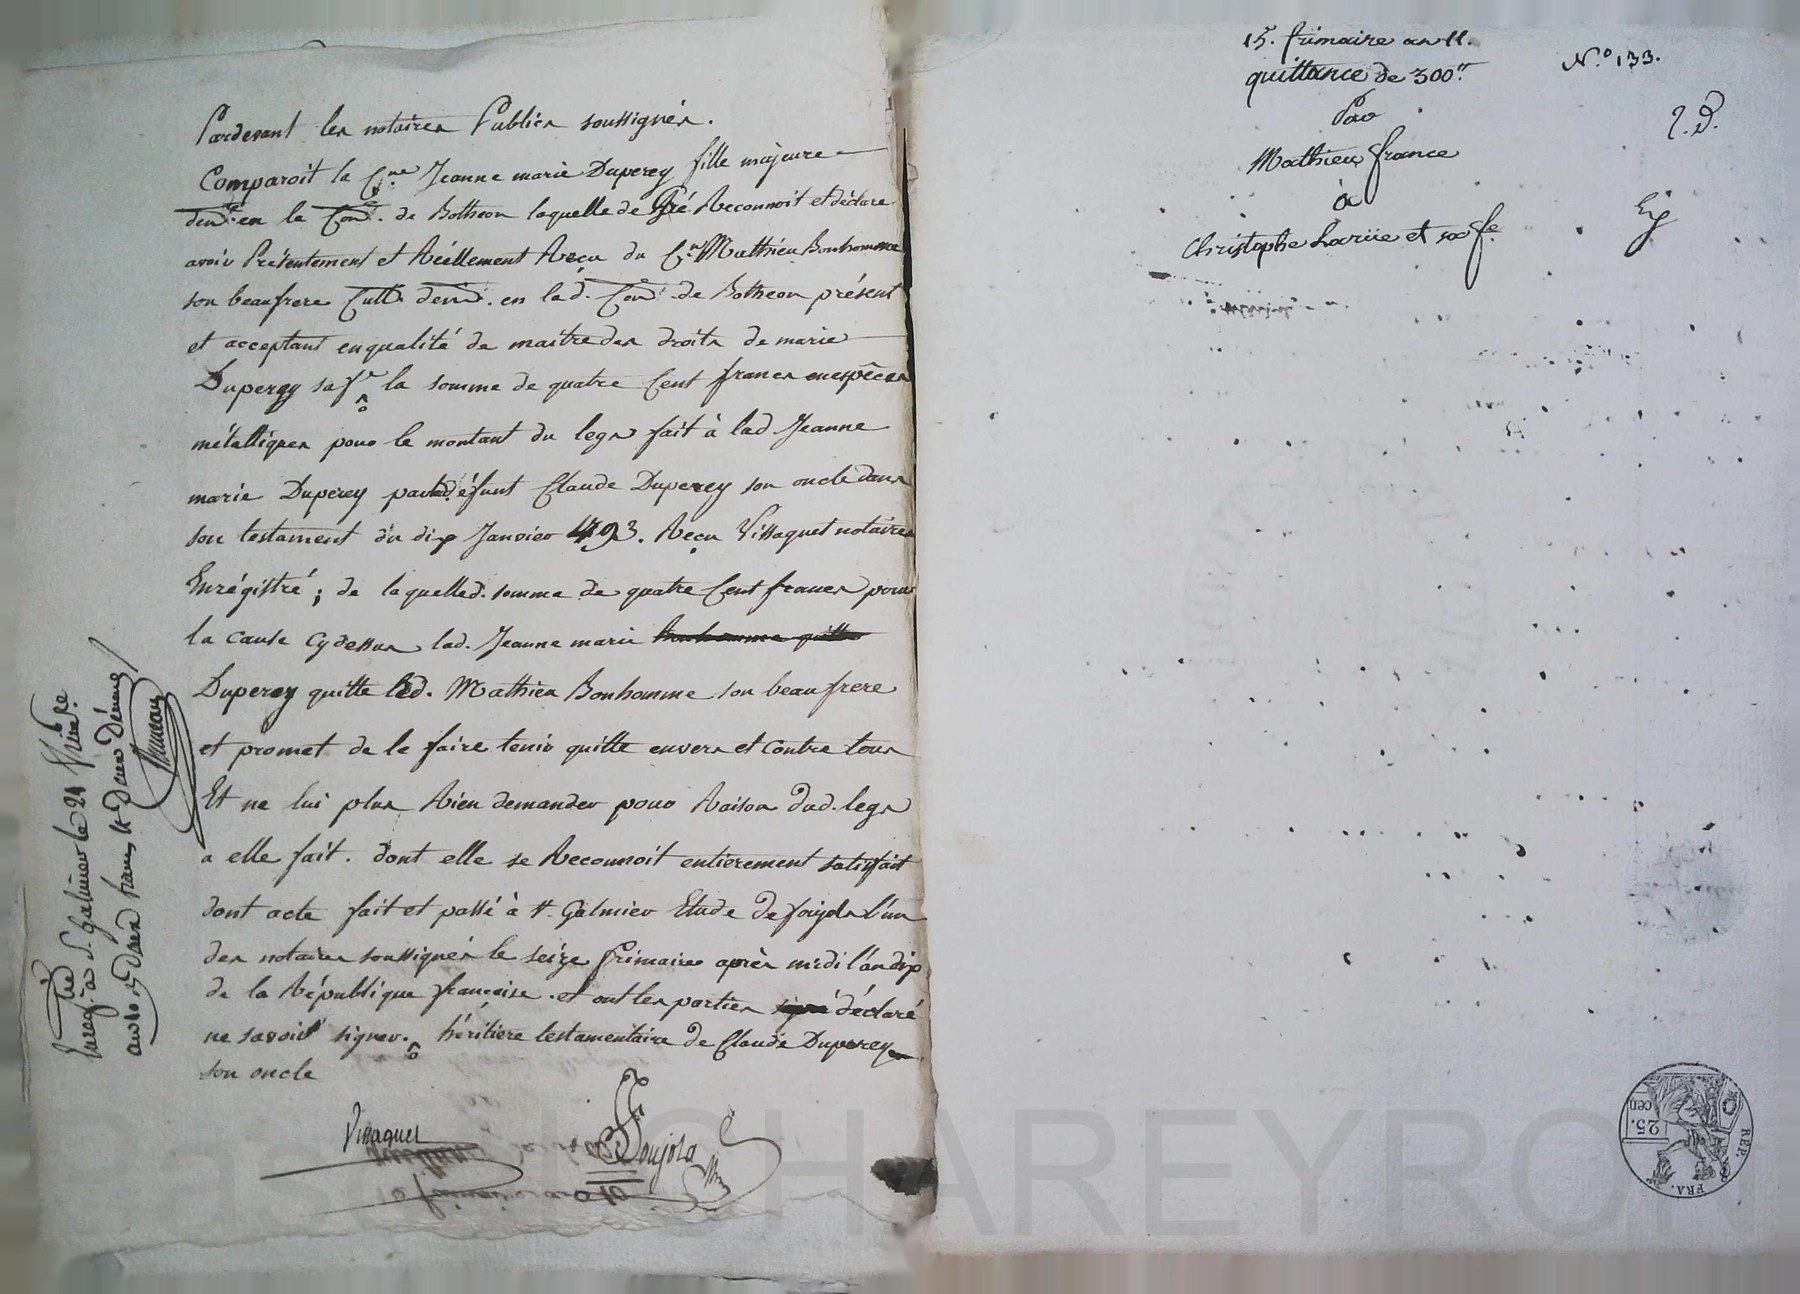 Pardevant les notaires Publics soussignés.
Comparoit la Cne Jeanne marie Duperey fille majeure
demte en la Cone. de Botheon laquelle de Gré Reconnoit et déclare
avoir Présentement et Réellement Reçu du Cn Matthieu Bonhomme
son beaufrere Cultr. demt. en lad. Cone de Botheon présent
et acceptant en qualité de maitre des droits de marie
Duperey sa fe la somme de quatre Cent francs en espèces
métalliques pour le montant du legs fait à lad. Jeanne
marie Duperey par led. défunt Claude Duperey son oncle dans
son testament du dix Janvier 1793. Reçu Vissaguet notaire
Enrégistré ; de laquelle d. somme de quatre Cent francs pour
la cause cy dessus lad. Jeanne marie Bonhomme quitte
Duperey quitte led. Mathieu Bonhomme son beaufrere
et promet de le faire tenir quitte envers et contre tous
Et ne lui plus Rien demander pour Raison dud. legs
a elle fait. dont elle se Reconnoit entierement satisfait
dont acte fait et passé à St. Galmier Etude de foujols l'un
des notaires soussignés le seize frimaire après midi l'an dix
de la République françoise. et ont les parties signé déclaré
ne savoir signer. héritiere testamentaire de Claude Duperey
son oncle
Vissaguet
Foujols
Enregtré à St. Galmier le 24 frimre
an 10 Reçu deux francs et deux décimes
15. frimaire an 11.
quittance de 300tt
Par
Mathieu france
à
Christophe Larüe et sa fe
N.º 133.
2. d.
REP. FRA.
25. cen
Basile CHAREYRON